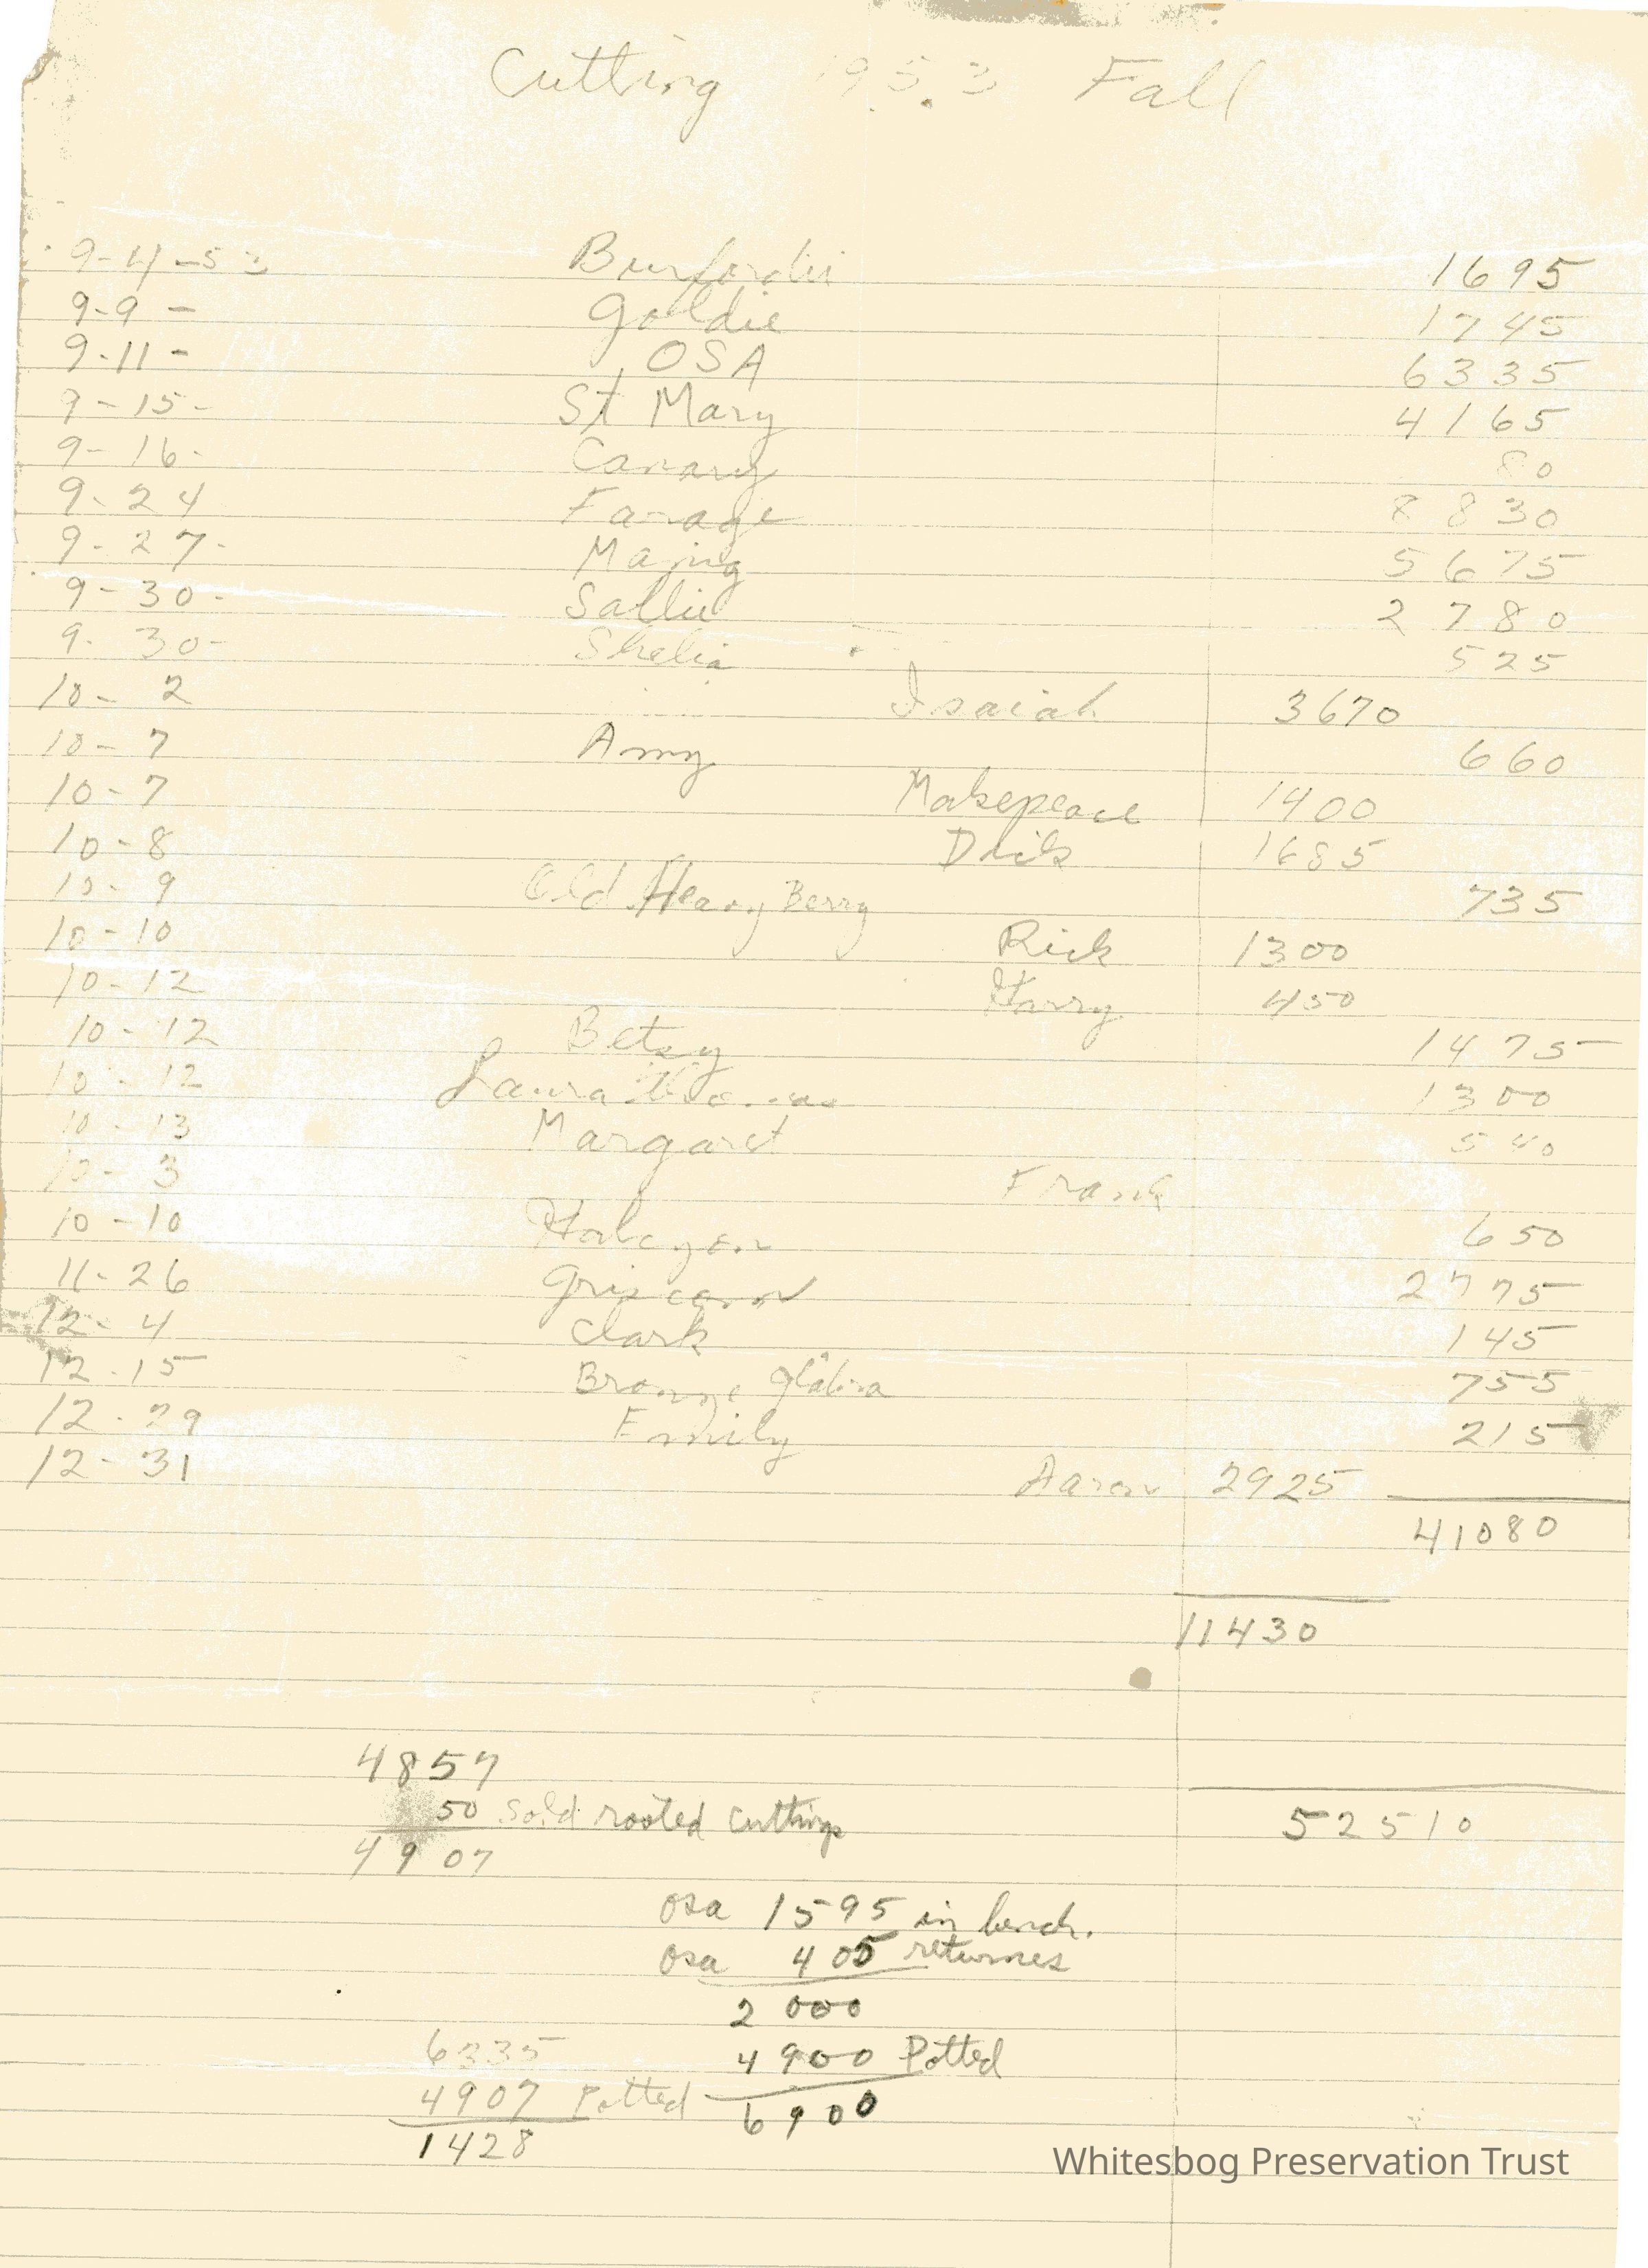 Cutting 1953 Fall
9-4-53 Burfordii 1695
9-9- Goldie 1745
9-11- OSA 6335
9-15- St Mary 4165
9-16- Canary 80
9-24 Farage 8830
9-27- 5675
9-30- Sallie 2780
9-30- Shelia 525
10-2 Isaiah 3670
10-7 Amy 660
10-7 Makepeace 1400
10-8 Dick 1685
10-9 Old Heavy Berry 735
10-10 Rick 1300
10-12 Harry 450
10-12 Betsy 1475
10-12 Laura 1300
10-13 Margaret 540
10-3 Frank
10-10 Halcyon 650
11-26 Griscom 2775
12-4 Clark 145
12-15 Bronze Glabra 755
12-29 Emily 215
12-31 Aaron 2925
41080
11430
4857
50 Sold rooted cuttings
52510
4907
Osa 1595 in bench.
Osa 405 returnes
2000
6335 4900 Potted
4907 Potted 6900
1428
Whitesbog Preservation Trust